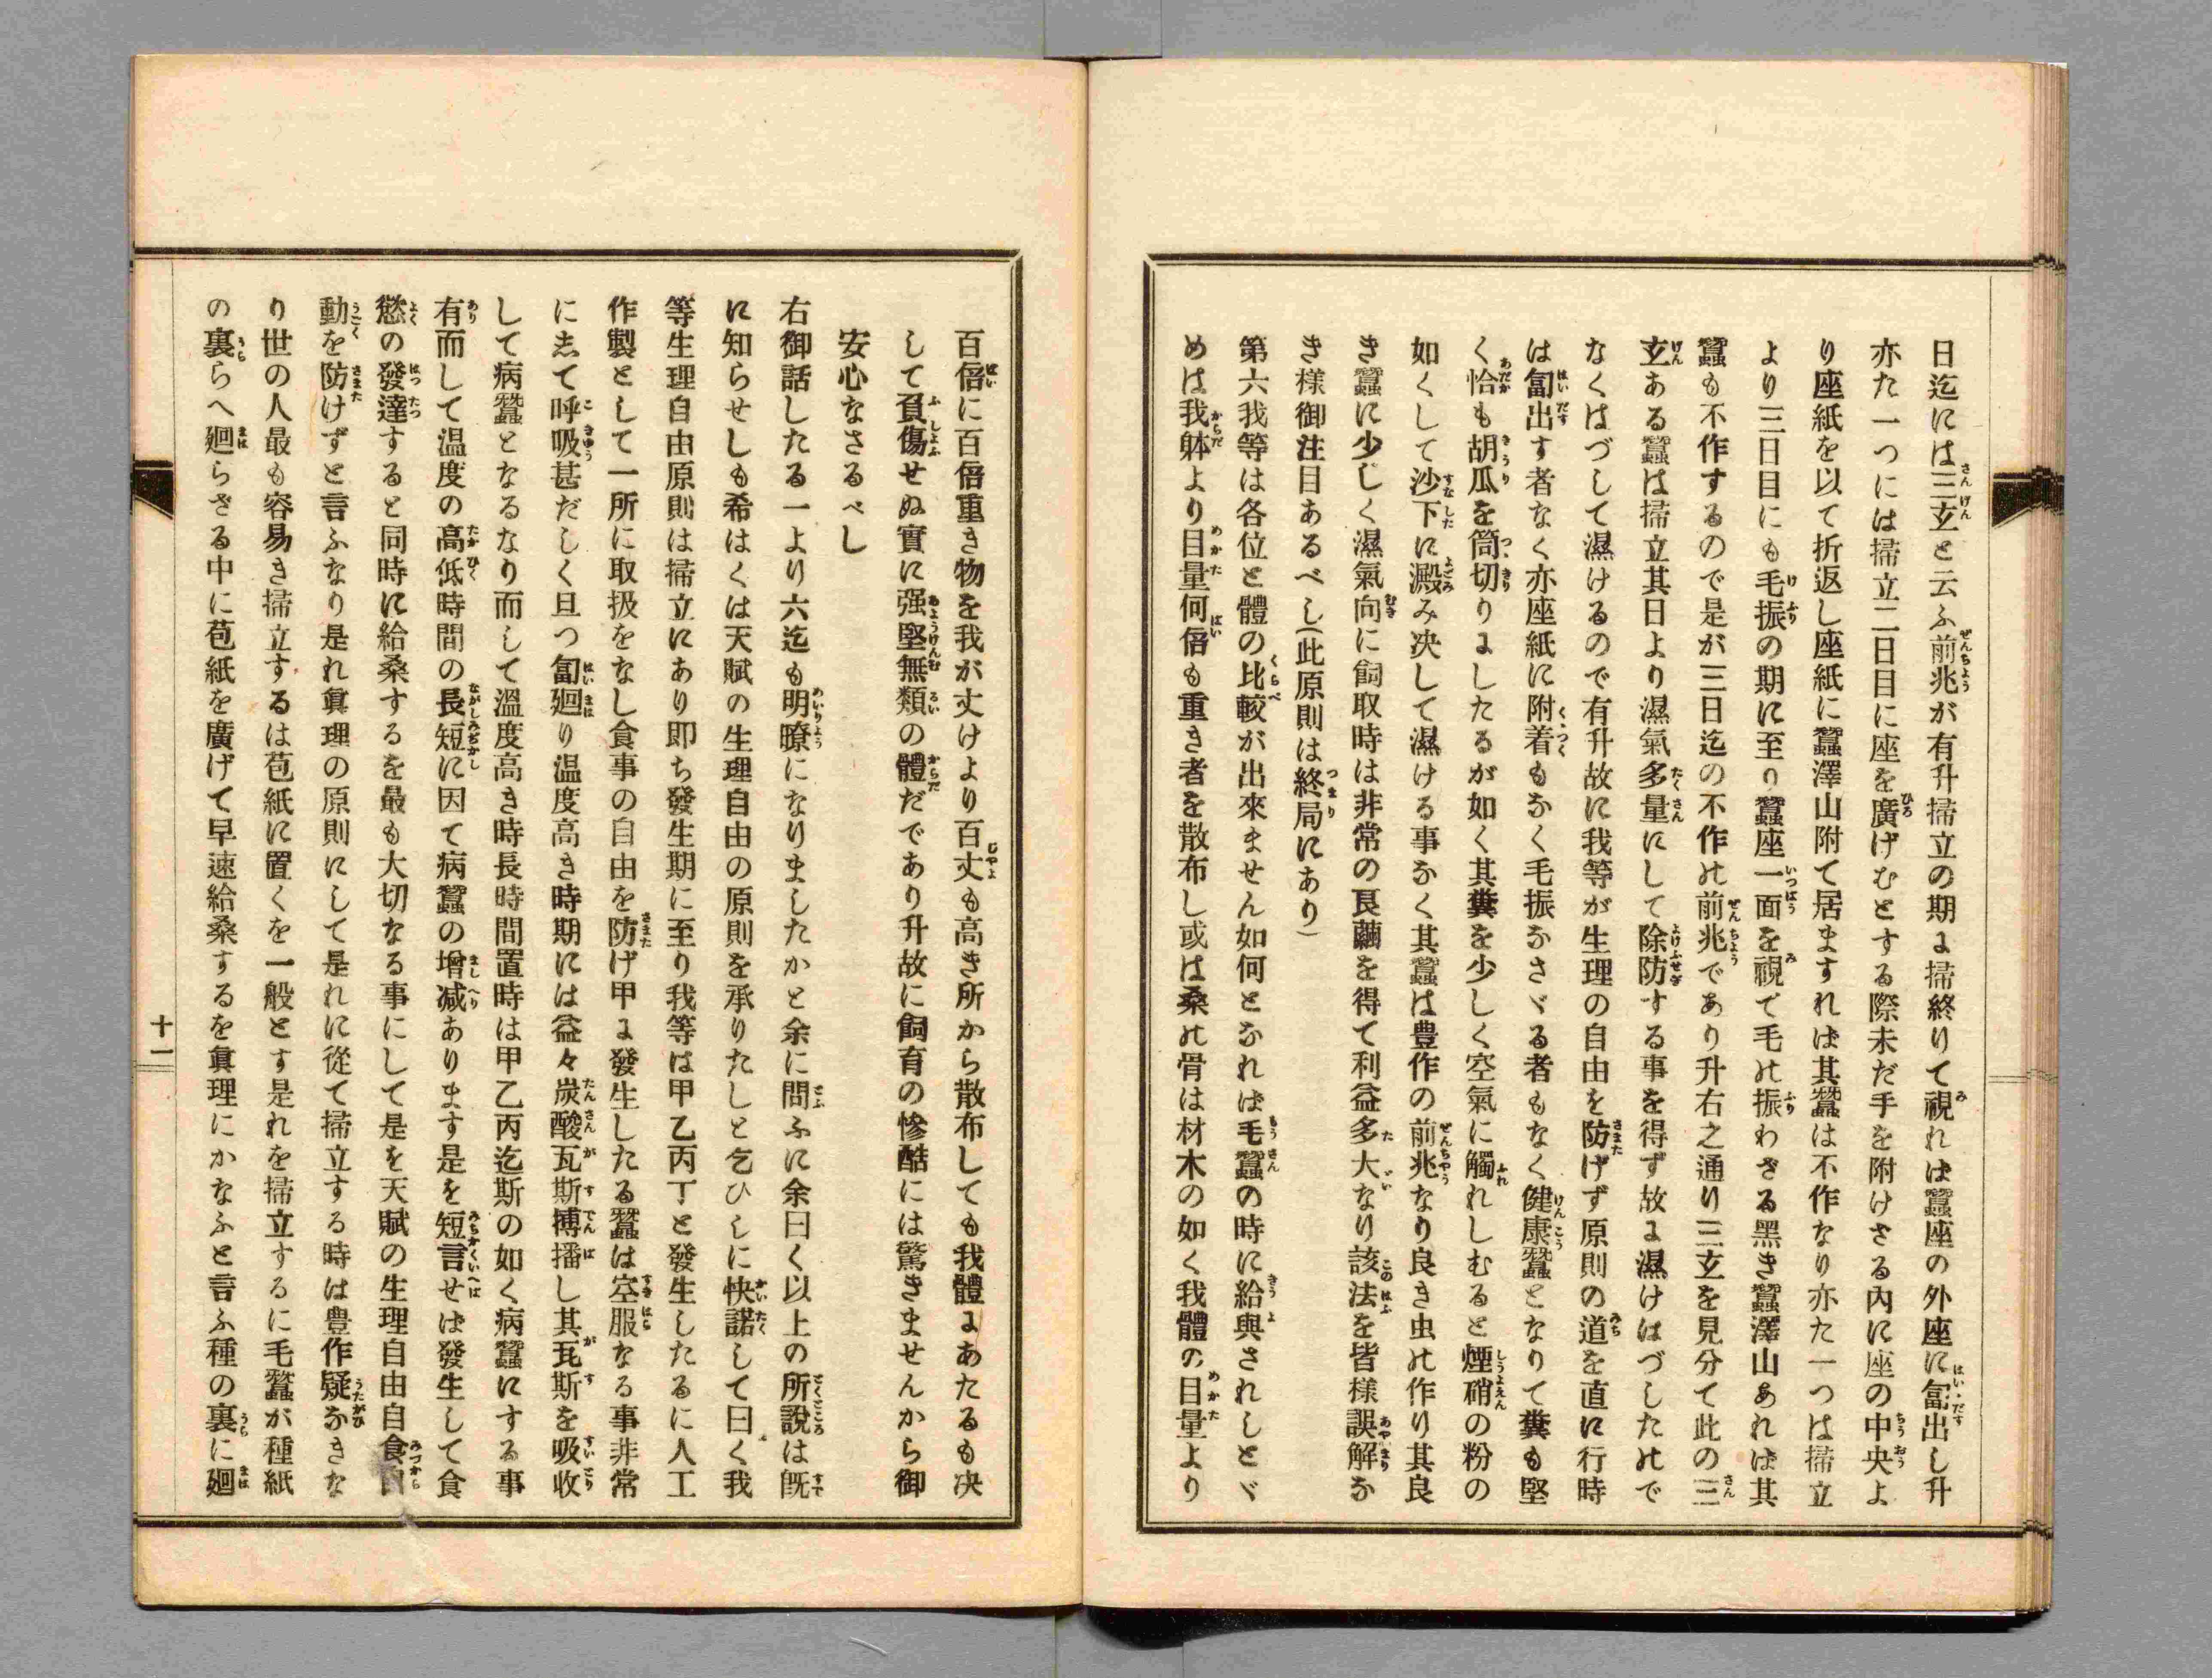 日迄には三玄と云ふ前兆が有升掃立の期に掃終りて視れば蠶座の外座に匐出し升
亦た一つには掃立二日目に座を廣げむとする際未だ手を附けざる內に座の中央よ
り座紙を以て折返し座紙に蠶澤山附て居ますれば其蠶は不作なり亦た一つは掃立
より三日目にも毛振の期に至り蠶座一面を視て毛の振わざる黑き蠶澤山あれば其
蠶も不作するので是が三日迄の不作の前兆であり升右之通り三玄を見分て此の三
玄ある蠶は掃立其日より濕氣多量にして除防する事を得ず故に濕けはづしたので
なくはづして濕けるので有升故に我等が生理の自由を防げず原則の道を直に行時
は匐出す者なく亦座紙に附着もなく毛振なさゞる者もなく健康蠶となりて糞も堅
く恰も胡瓜を筒切りにしたるが如く其糞を少しく空氣に觸れしむると煙硝の粉の
如くして沙下に澱み决して濕ける事なく其蠶は豊作の前兆なり良き虫の作り其良
き蠶に少じく濕氣向に飼取時は非常の良繭を得て利益多大なり該法を皆樣誤解な
き樣御注目あるべし(此原則は終局にあり)
第六我等は各位と體の比較が出來ません如何となれば毛蠶の時に給與されしとゞ
めは我躰より目量何倍も重き者を散布し或は桑の骨は材木の如く我體の目量より
百倍に百倍重き物を我が丈けより百丈も高き所から散布しても我體にあたるも决
して負傷せぬ實に强堅無類の體だであり升故に飼育の慘酷には驚きませんから御
安心なさるべし
右御話したる一より六迄も明瞭になりましたかと余に問ふに余曰く以上の所說は旣
に知らせしも希はくは天賦の生理自由の原則を承りたしと乞ひしに快諾して曰く我
等生理自由原則は掃立にあり卽ち發生期に至り我等は甲乙丙丁と發生したるに人工
作製として一所に取扱をなし食事の自由を防げ甲に發生したる蠶は空服なる事非常
にして呼吸甚だしく且つ匐廻り温度高き時期には益々炭酸瓦斯搏播し其瓦斯を吸收
して病蠶となるなり而して溫度高き時長時間置時は甲乙丙迄斯の如く病蠶にする事
有而して温度の高低時間の長短に因て病蠶の增减あります是を短言せば發生して食
慾の發達すると同時に給桑するを最も大切なる事にして是を天賦の生理自由自食自
動を防けずと言ふなり是れ眞理の原則にして是れに從て掃立する時は豊作疑なきな
り世の人最も容易き掃立するは苞紙に置くを一般とす是れを掃立するに毛蠶が種紙
の裏らへ廻らざる中に苞紙を廣げて早速給桑するを眞理にかなふと言ふ種の裏に廻
十一